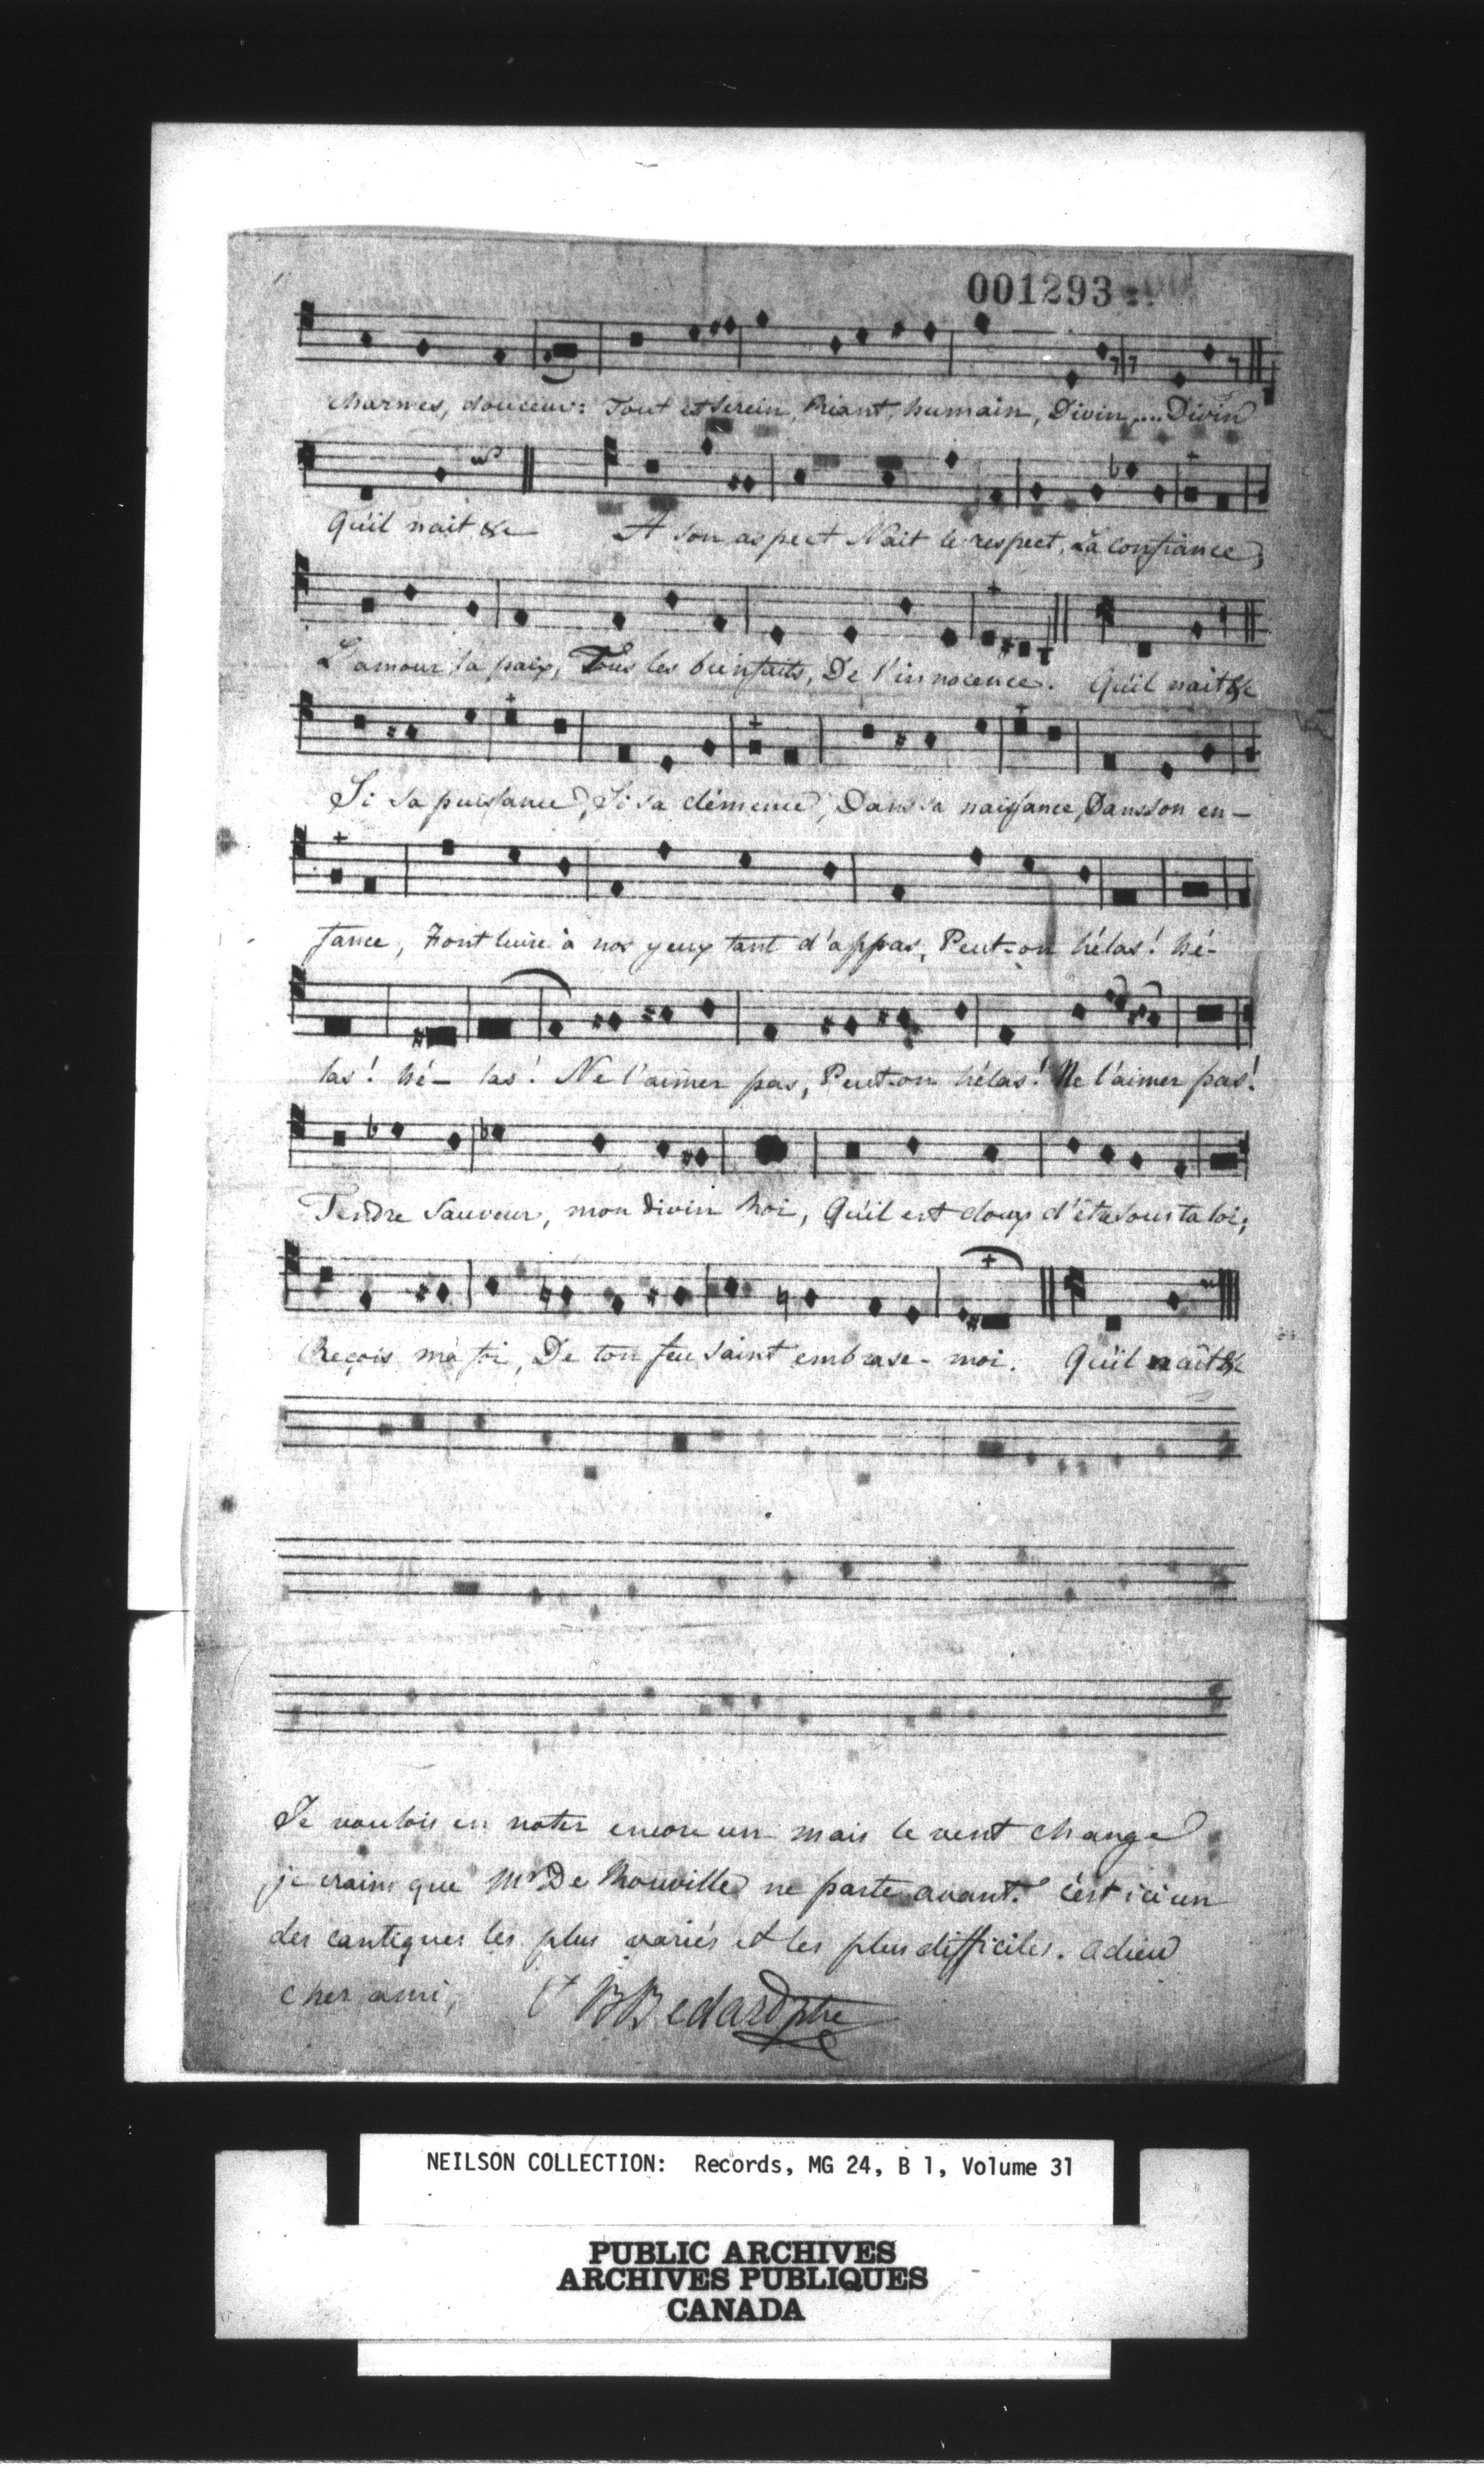 001293
charmes, douceur: Tout est serein, Riant, humain, Divin,.... Divin
Qu'il nait &c A son aspect Nait le respect, La confiance,
L'amour la paix, Tous les bienfaits, De l'innocence. Qu'il nait &c
Si sa puissance, Si sa clémence, Dans sa naissance, Dans son en-
fance, Font luire à nos yeux tant d'appas, Peut-on hélas! hé-
las! hé- las! Ne l'aimer pas, Peut-on hélas! Ne l'aimer pas!
Tendre Sauveur, mon divin Roi, Qu'il est doux d'être sous ta loi;
Reçois ma foi, De ton feu saint embrase-moi. Qu'il naît &c
Je voulois en noter encore un mais le vent change
je crains que Mr De Rouville ne parte avant. c'est ici un
des cantiques les plus variés et les plus difficiles. adieu
cher ami, BBedard ptre
NEILSON COLLECTION: Records, MG 24, B 1, Volume 31
PUBLIC ARCHIVES
ARCHIVES PUBLIQUES
CANADA